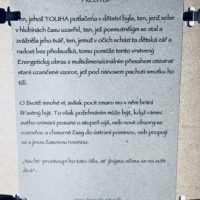 PROSTŮJ!
Ten, jehož TOUHA potlačena v dětství byla, ten, jenž sebe
v hlubinách času uzavřel, ten, jež posmutnělým se stal a
zvážněla jeho tvář, ten, jemuž v očích schází ta dětská zář a
radost bez předsudků, tomu pomůže tento vrstvený
Energetický obraz s multidimenzionálním přesahem otevírat
staré uzamčené vzorce, jež pod nánosem pachuti smutku ho
tíží.
O životě mnohé ví, avšak pocit zmaru mu v něm brání
šťastný být. To však požehnáním může být, když rámec
svého vnímání posune o stupeň výš, neb nové obzory se
rozevřou a chmurné časy do ústraní pominou, neb propojí
se s jinou časovou rovinou.
„Nechť prostoupí ho tato Síla, ať jinýma očima se na svět
dívá".